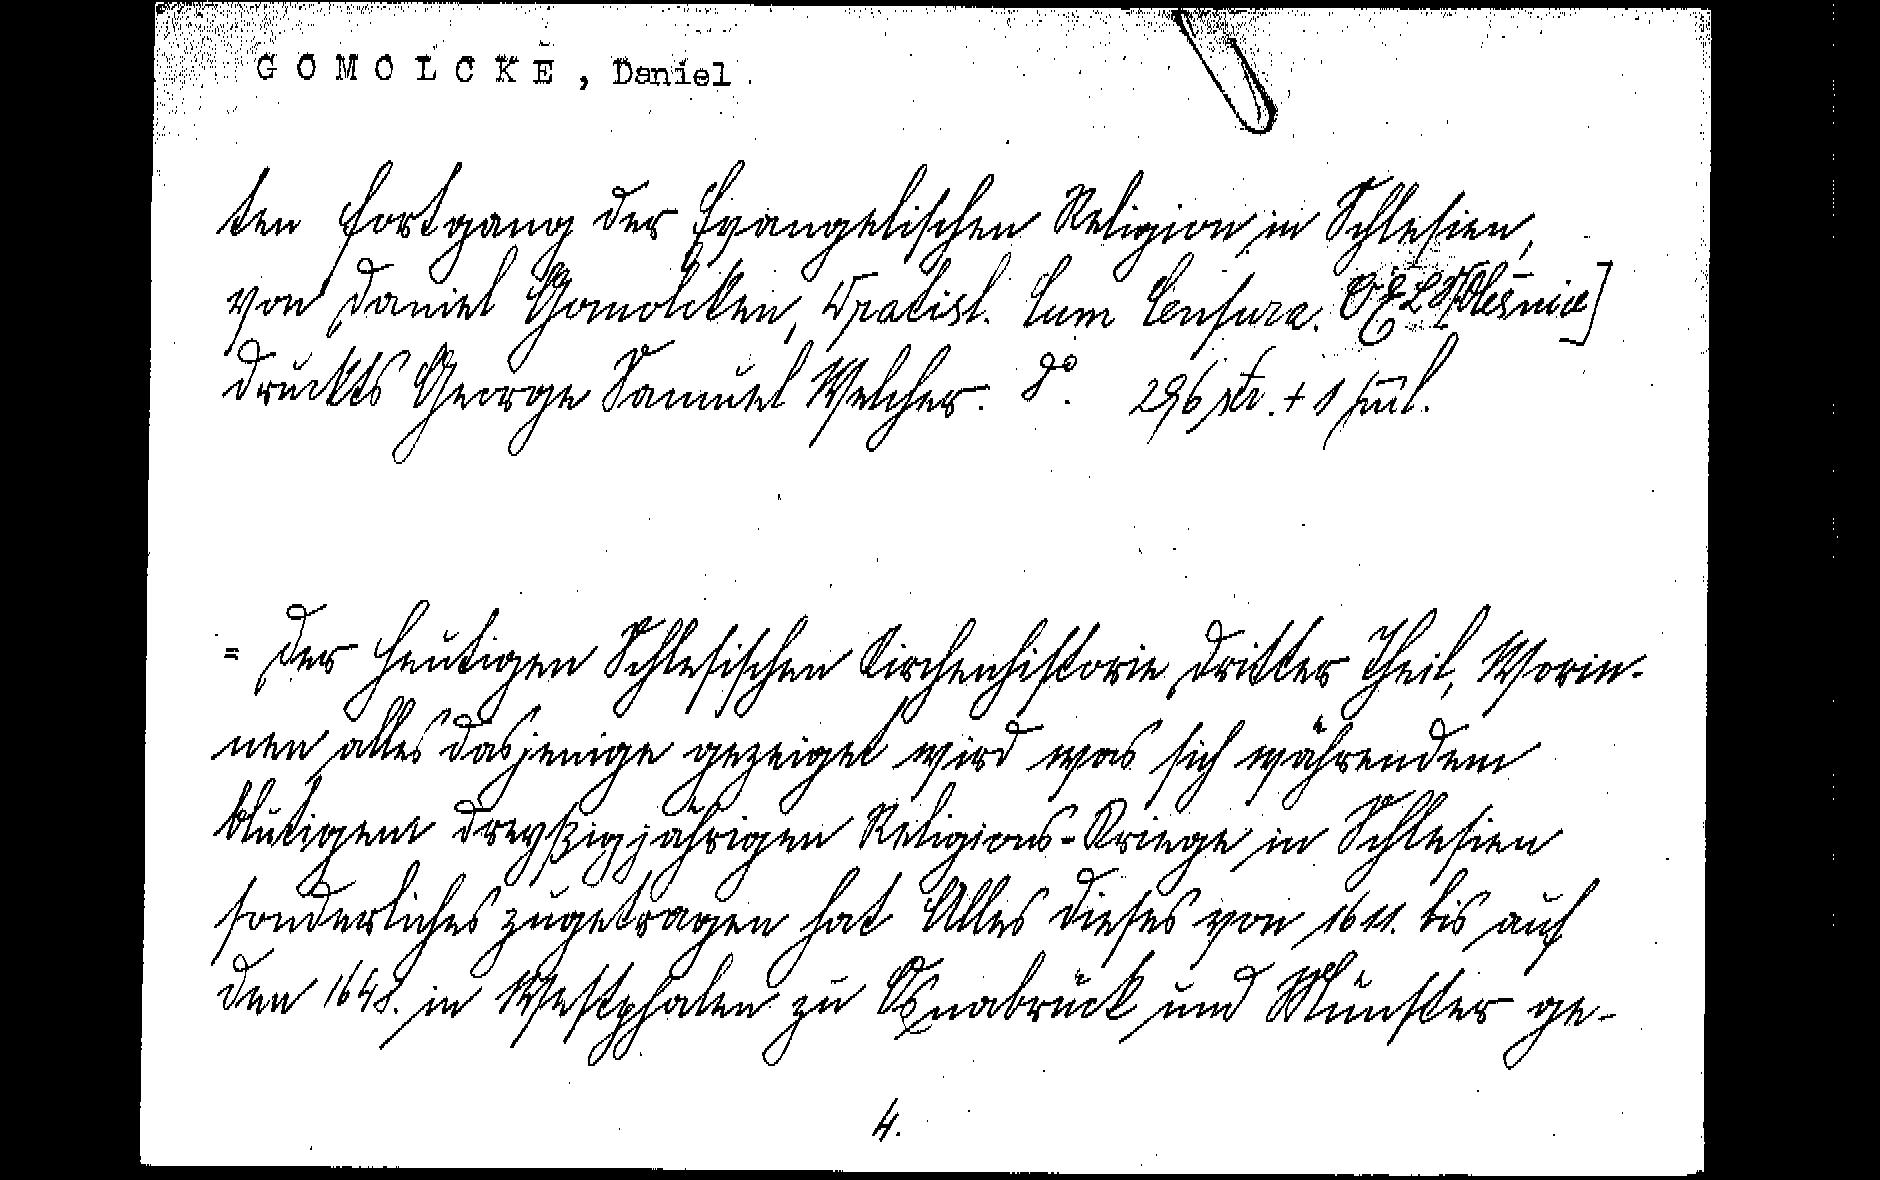 GOMOLCKE, Daniel.
ten Fortgang der Evangelischen Religion in Schlesien,
von Daniel Gomolcken, Vratisl. Cum Censura. OELS [Oleśnica]
druckts George Samuel Welcher. 8°. 296 str. + 1
= Der Heutigen Schlesischen Kirchenhistorie dritter Theil, Worin-
nen alles dasjenige gezeiget wird was sich währendem
blutigem dreyßigjährigen Religions-Kriege in Schlesien
sonderliches zugetragen hat Alles dieses von 1611. bis auf
den 1648. in Westphalen zu Osnabrück und Münster ge-
4.